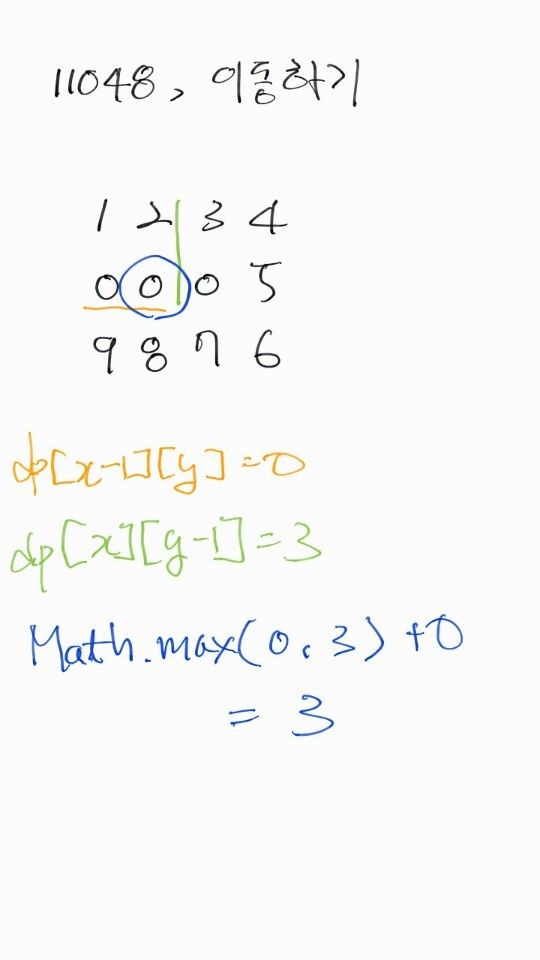 11048, 이동하기
1 2 3 4
0 0 0 5
9 8 7 6
dp[x-1][y]=0
dp[x][y-1]=3
Math.max(0, 3) +0
= 3